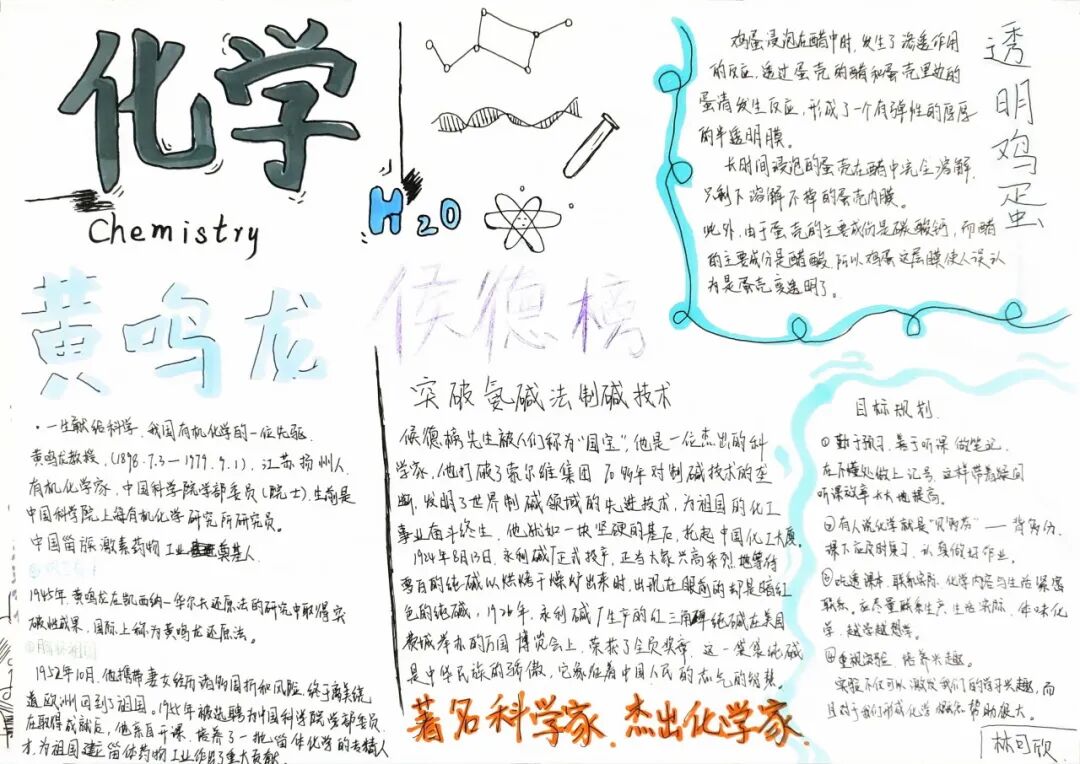 化学
Chemistry
H2O
透明鸡蛋
鸡蛋浸泡在醋中时,发生了渗透作用
的反应,透过蛋壳的醋和蛋壳里边的
蛋清发生反应,形成了一个有弹性的厚厚
的半透明膜。
长时间浸泡的蛋壳在醋中完全溶解,
只剩下溶解不掉的蛋壳内膜。
此外,由于蛋壳的主要成份是碳酸钙,而醋
的主要成分是醋酸,所以鸡蛋这层膜使人误认
为是蛋壳变透明了。
黄鸣龙
·一生献给科学,我国有机化学的一位先驱.
黄鸣龙教授,(1898.7.3—1979.9.1),江苏扬州人,
有机化学家,中国科学院学部委员(院士),生前是
中国科学院上海有机化学研究所研究员。
中国甾族激素药物工业奠基人.
1945年,黄鸣龙在凯西纳—华尔夫还原法的研究中取得突
破性成果,国际上称为黄鸣龙还原法。
②胸怀祖国
1952年10月,他携带妻女经历诸物周折和风险,终于离美绕
道欧洲回到了祖国,1955年被选聘为中国科学院学部委员.
在取得成就后,他亲自开课,培养了一批甾体化学的专精人
才,为祖国甾体药物工业作出了重大贡献
侯德榜
突破氨碱法制碱技术
侯德榜先生被人们称为“国宝”,他是一位杰出的科
学家,他打破了索尔维集团70多年对制碱技术的垄
断,发明了世界制碱领域的先进技术,为祖国的化工
事业奋斗终生,他犹如一块坚硬的基石,托起中国化工大厦。
1924年8月13日,永利碱厂正式投产,正当大家兴高采烈地等待
雪白的纯碱从烘焙干燥炉出来时,出现在眼前的却是暗红
色的纯碱,1926年,永利碱厂生产的红三角牌纯碱在美国
费城举办的万国博览会上,荣获了金质奖章,这一袋袋纯碱
是中华民族的骄傲,它象征着中国人民的志气的智慧.
著名科学家.杰出化学家.
目标规划.
①勤于预习,善于听课 做笔记,
在不懂处做上记号,这样带着疑问
听课效率大大地提高。
②有人说化学就是“贝多芬”——背多分,
课下应及时复习,认真做好作业。
③吃透课本,联系实际,化学内容与生活紧密
联系,应尽量联系生产、生活实际,体味化
学,越学越想学。
④重视实验,培养兴趣。
实验不仅可以激发我们的学习兴趣,而
且对于我们形成化学概念帮助很大。
林可欣